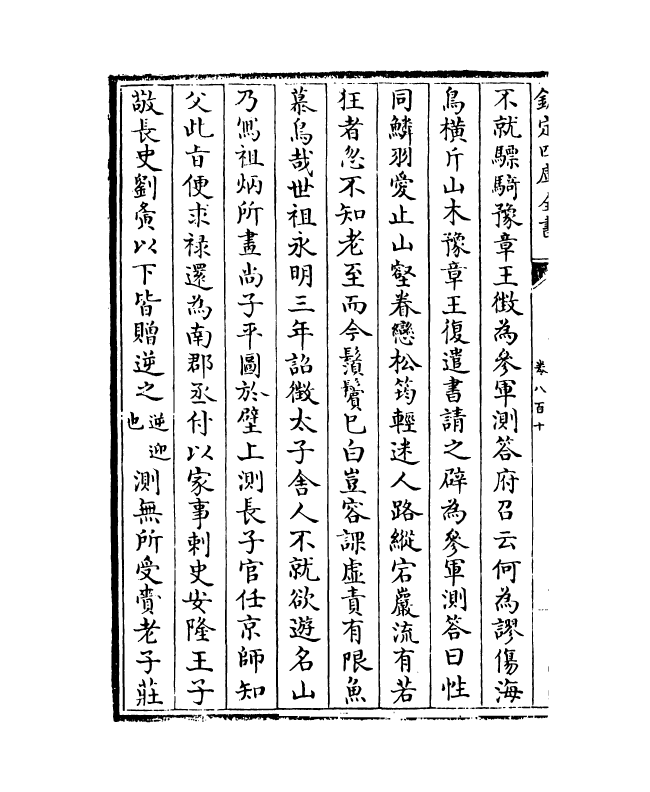 欽定四庫全書
卷八百十
不就驃騎豫章王徴為參軍測答府召云何為謬傷海
鳥橫斤山木豫章王復遣書請之辟為參軍測答曰性
同鱗羽愛止山壑眷戀松筠輕迷人路縱宕巖流有若
狂者忽不知老至而今鬚鬢已白豈容課虛責有限魚
慕鳥哉世祖永明三年詔徴太子舍人不就欲遊名山
乃寫祖炳所畫尚子平圖於壁上測長子官任京師知
父此旨便求禄還為南郡丞付以家事刺史安陸王子
敬長史劉寅以下皆贈逆之
逆迎
也
測無所受賷老子莊